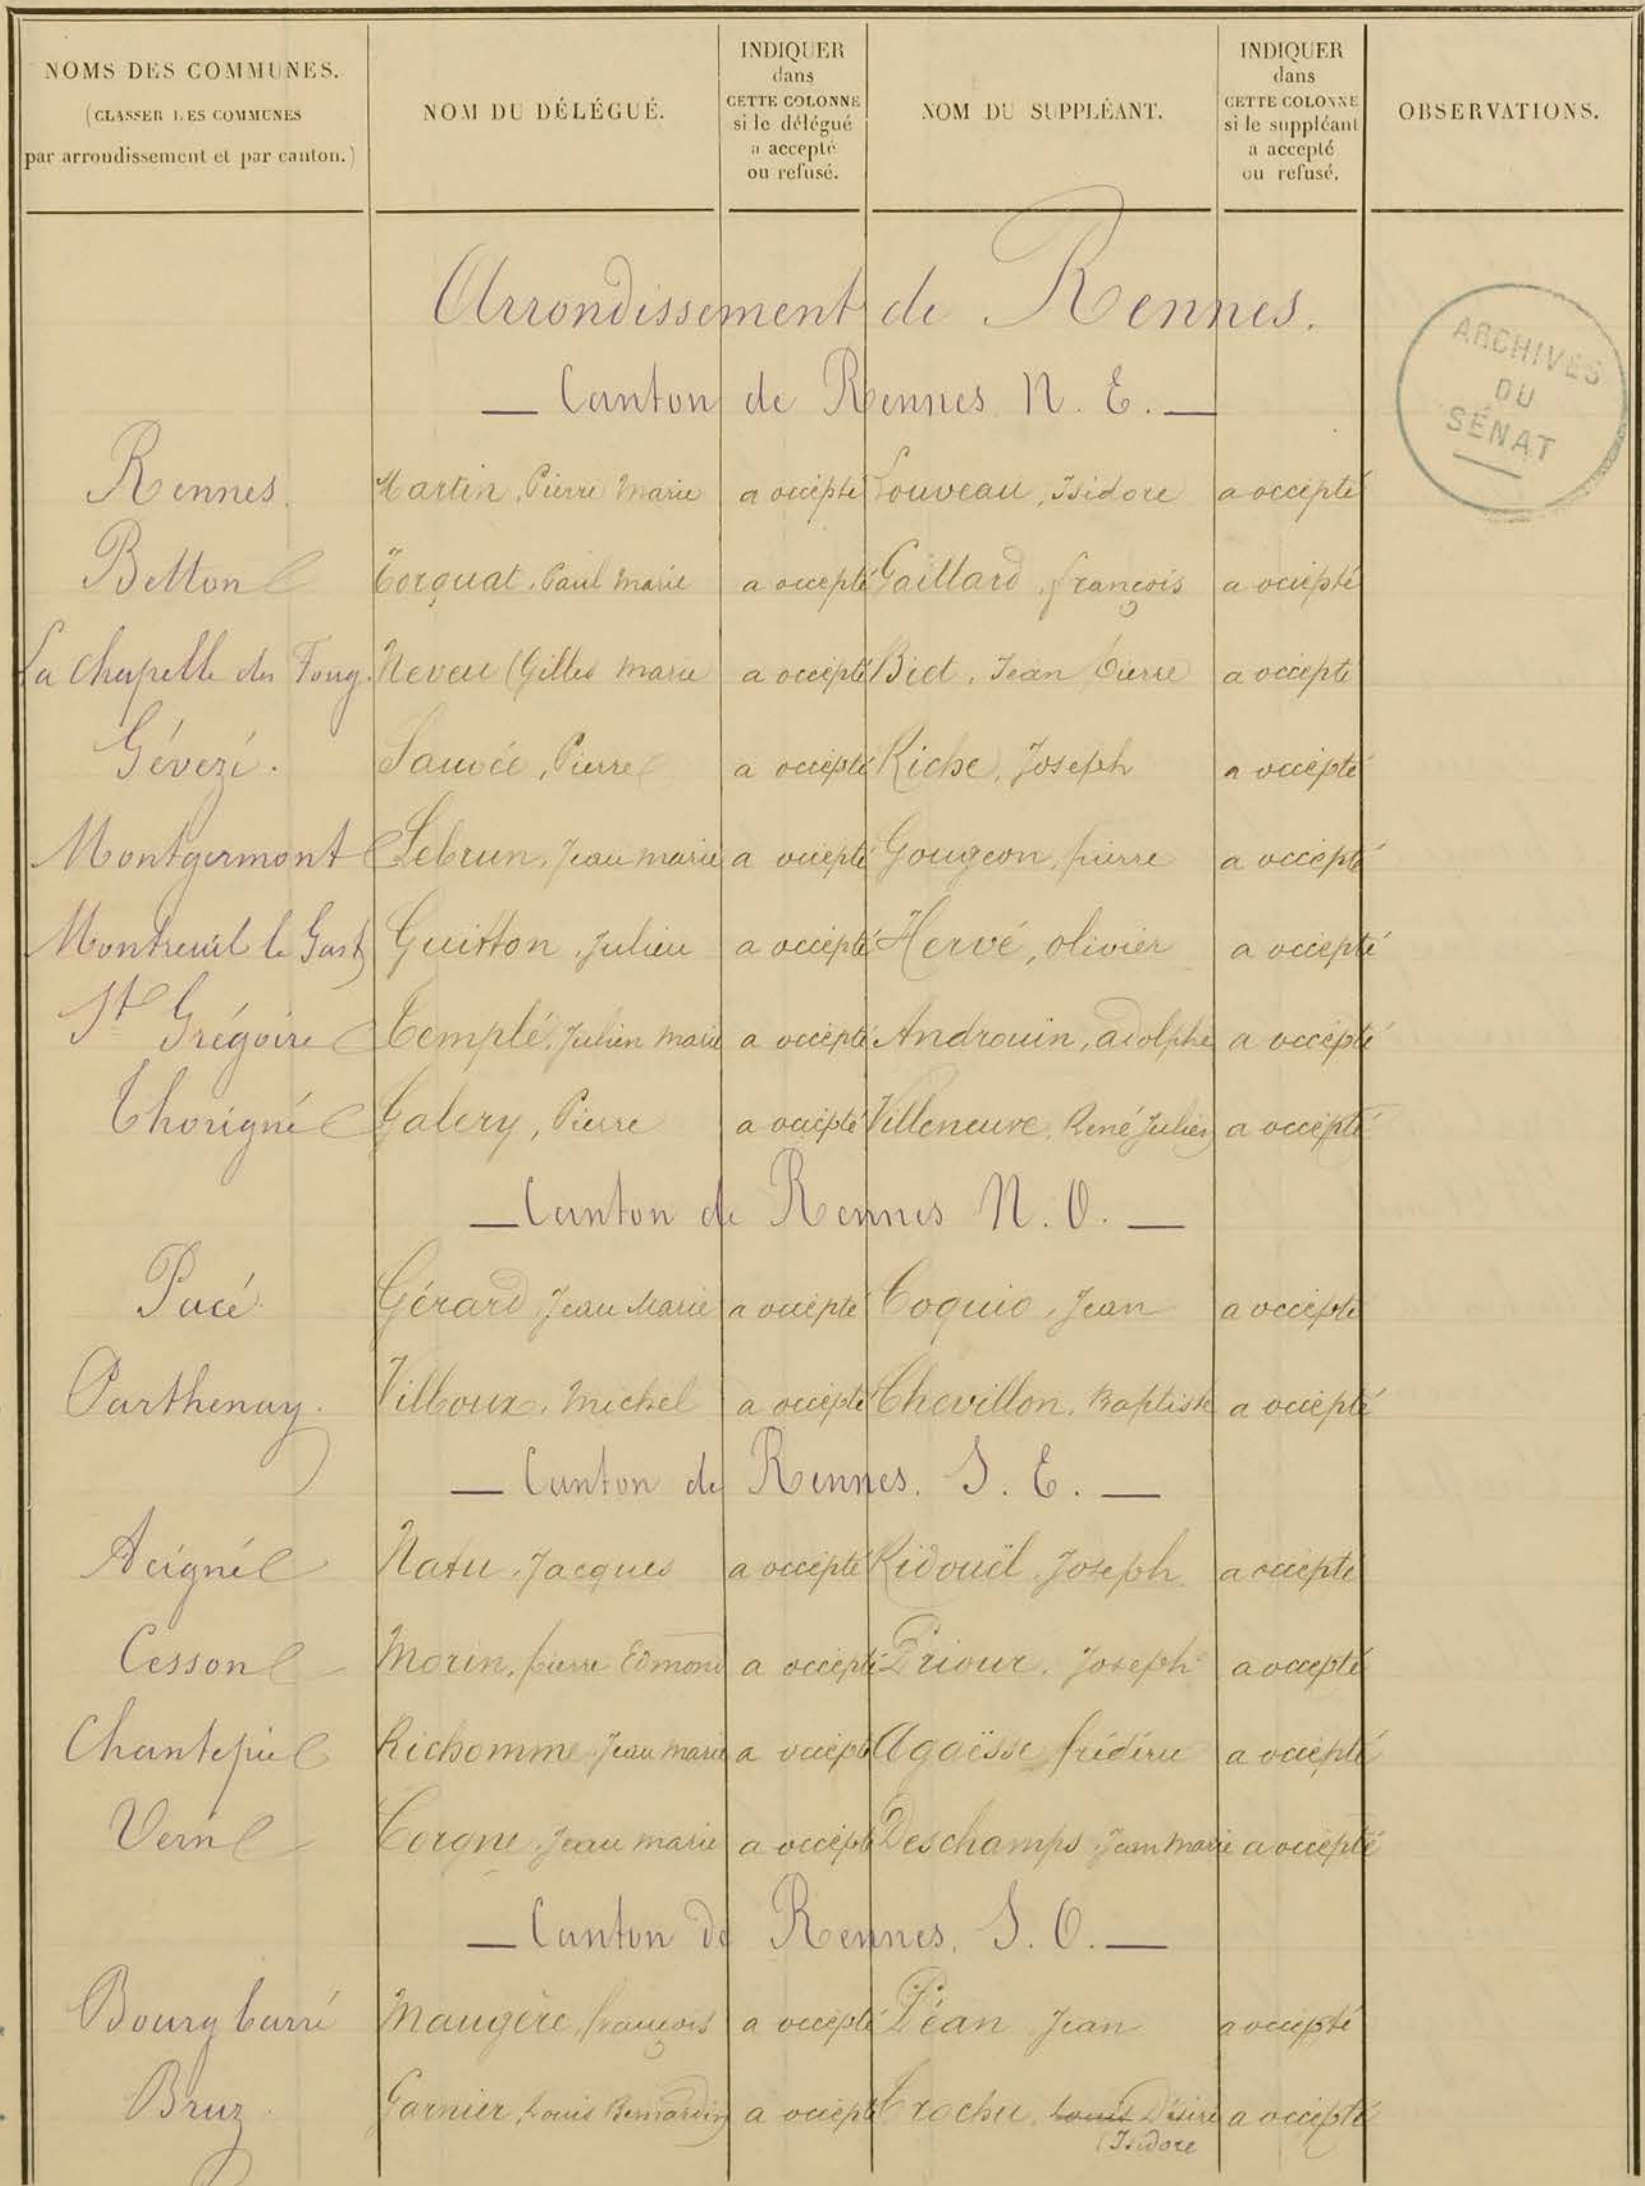 NOMS DES COMMUNES.
(CLASSER LES COMMUNES
par arrondissement et par canton.)
NOM DU DÉLÉGUÉ.
INDIQUER
dans
CETTE COLONNE
si le délégué
a accepté
ou refusé.
NOM DU SUPPLÉANT.
INDIQUER
dans
CETTE COLONNE
si le suppléant
a accepté
ou refusé.
OBSERVATIONS.
Arrondissement de Rennes.
— Canton de Rennes N. E. —
ARCHIVES
DU
SÉNAT
Rennes. Martin, Pierre Marie a accepté Louveau, Isidore a accepté
Betton Torquat, Paul Marie a accepté Gaillard, françois a accepté
La Chapelle des Foug. Neveu (Gilles marie a accepté Biet, Jean Pierre a accepté
Gévezé. Sauvée, Pierre a accepté Riche, Joseph a accepté
Montgermont Lebrun, Jean marie a accepté Gougeon, pierre a accepté
Montreuil le Gast Guitton, Julien a accepté Hervé, olivier a accepté
St Grégoire Templé, Julien marie a accepté Androuin, adolphe a accepté
Thorigné Galery, Pierre a accepté Villeneuve, René Julien a accepté
— Canton de Rennes N. O. —
Pacé Gérard Jean Marie a accepté Coquio, Jean a accepté
Parthenay. Villoux, Michel a accepté Chevillon, Baptiste a accepté
— Canton de Rennes. S. E. —
Acigné Natu, Jacques a accepté Ridouël, Joseph a accepté
Cesson Morin, pierre Edmond a accepté Priour, Joseph a accepté
Chantepie Richomme, Jean marie a accepté Agaësse frédéric a accepté
Vern Corgne, Jean marie a accepté Deschamps, Jean marie a accepté
— Canton de Rennes. S. O. —
Bourgbarré Maugère, françois a accepté Péan Jean a accepté
Bruz Garnier, Louis Bernardin a accepté Trochu, Louis Désiré a accepté
(Isidore